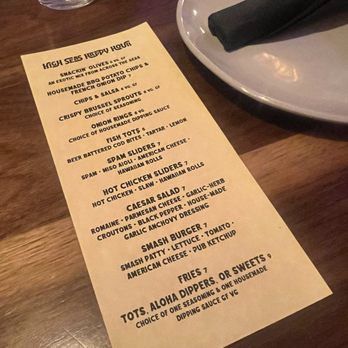 HIGH SEAS HAPPY HOUR
SNACKIN' OLIVES 6 VG, GF
AN EXOTIC MIX FROM ACROSS THE SEAS
HOUSEMADE BBQ POTATO CHIPS &
FRENCH ONION DIP 7
CHIPS & SALSA 6 VG, GF
CRISPY BRUSSEL SPROUTS 6 GF
CHOICE OF SEASONING
ONION RINGS 6 VG
CHOICE OF HOUSEMADE DIPPING SAUCE
FISH TOTS 9
BEER BATTERED COD BITES - TARTAR - LEMON
SPAM SLIDERS 7
SPAM - MISO AIOLI - AMERICAN CHEESE -
HAWAIIAN ROLLS
HOT CHICKEN SLIDERS 7
HOT CHICKEN - SLAW - HAWAIIAN ROLLS
CAESAR SALAD 7
ROMAINE - PARMESAN CHEESE - GARLIC-HERB
CROUTONS - BLACK PEPPER - HOUSE-MADE
GARLIC ANCHOVY DRESSING
SMASH BURGER 7
SMASH PATTY - LETTUCE - TOMATO -
AMERICAN CHEESE - PUB KETCHUP
FRIES 7
TOTS, ALOHA DIPPERS, OR SWEETS 9
CHOICE OF ONE SEASONING & ONE HOUSEMADE
DIPPING SAUCE GF VG